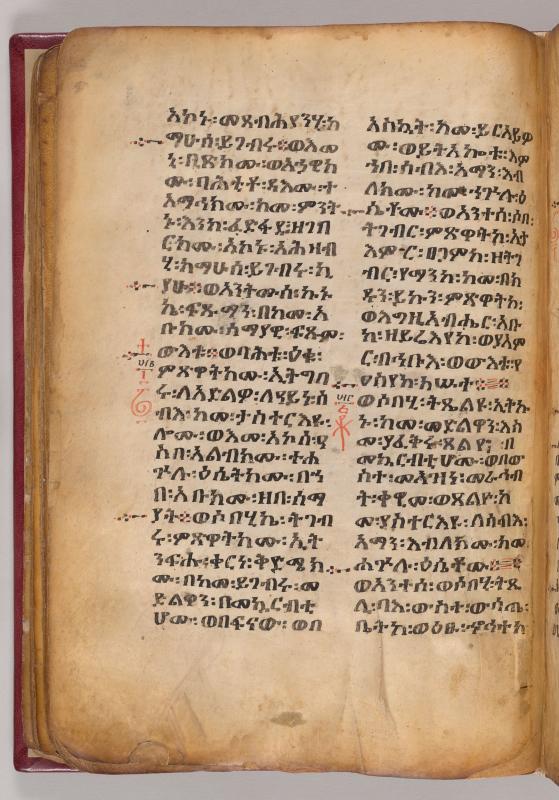 አኮኑ፡መጸብሕያንሂ፡ከ
ማሁ፡ሰ፡ይገብሩ፡ወእመ
ኒ፡ቢጽክሙ፡ወአኃዊክ
ሙ፡ባሕቲቶ፡ዳእሙ፡ተ
አማኅክሙ፡ከመ፡ምንት
ኑ፡እንከ፡ፈድፋደ፡ዘገበ
ርክሙ፡አኮኑ፡አሕዛብ
ሂ፡ከማሁሰ፡ይገብሩ፡ኪ
ያሁ፡ወአንትሙሰ፡ኩኑ
ኬ፡ፍጹማን፡በከመ፡አ
ቡክሙ፡ሰማያዊ፡ፍጹም፡
ውእቱ፡ወባሕቱ፡ዑቁ፡
ምጽዋትክሙ፡ኢትግበ
ሩ፡ለአድልዎ፡ለዓይነ፡ሰ
ብእ፡ከመ፡ታስተርእዩ፡
ሎሙ፡ወእመ፡አኮሰ፡ዓ
ስበ፡አልብክሙ፡ተሐ
ጕሉ፡ዕሴትክሙ፡በኀ
በ፡አቡክሙ፡ዘበ፡ሰማ
ያት፡ወሶበሂኬ፡ትገብ
ሩ፡ምጽዋትክሙ፡ኢት
ንፍሑ፡ቀርነ፡ቅድሜክ
ሙ፡በከመ፡ይገብሩ፡መ
ድልዋን፡በመኳርብቲ
ሆሙ፡ወበፍናው፡ወበ
አስኳት፡ከመ፡ይርአይዎ
ሙ፡ወይትአኰቱ፡እም
ኀበ፡ሰብእ፡አማን፡እብ
ለክሙ፡ከመ፡ኀጕሉ፡ዕ
ሴቶሙ፡ወአንተሰ፡ሶበ፡
ትገብር፡ምጽዋተከ፡ኢት
እምር፡ፀጋምከ፡ዘትገ
ብር፡የማንከ፡ከመ፡በክ
ዱን፡ይኩን፡ምጽዋትከ፡
ወእግዚአብሔር፡አቡ
ከ፡ዘይሬእየከ፡ወያአም
ር፡ብኅቡእ፡ወውእቱ፡የ
ዐስየከ፡ክሡተ፡
ወሶበሂ፡ትጼልዩ፡ኢትኩ
ኑ፡ከመ፡መድልዋን፡እስ
መ፡ያፈቅሩ፡ጸልዮ፡በ
መኳርብቲሆሙ፡ወበው
ስተ፡መአዝነ፡መራኅብ
ት፡ቀዊመ፡ወጸልዮ፡ከ
መ፡ያስተርእዩ፡ለሰብእ፡
አማን፡እብለክሙ፡ከመ
ሐጕሉ፡ዕሴቶሙ፡
ወአንተሰ፡ወሶበሂ፡ትጼ
ሊ፡ባእ፡ውስተ፡ውሳጤ፡
ቤትከ፡ወዕፁ፡ኆኅተከ